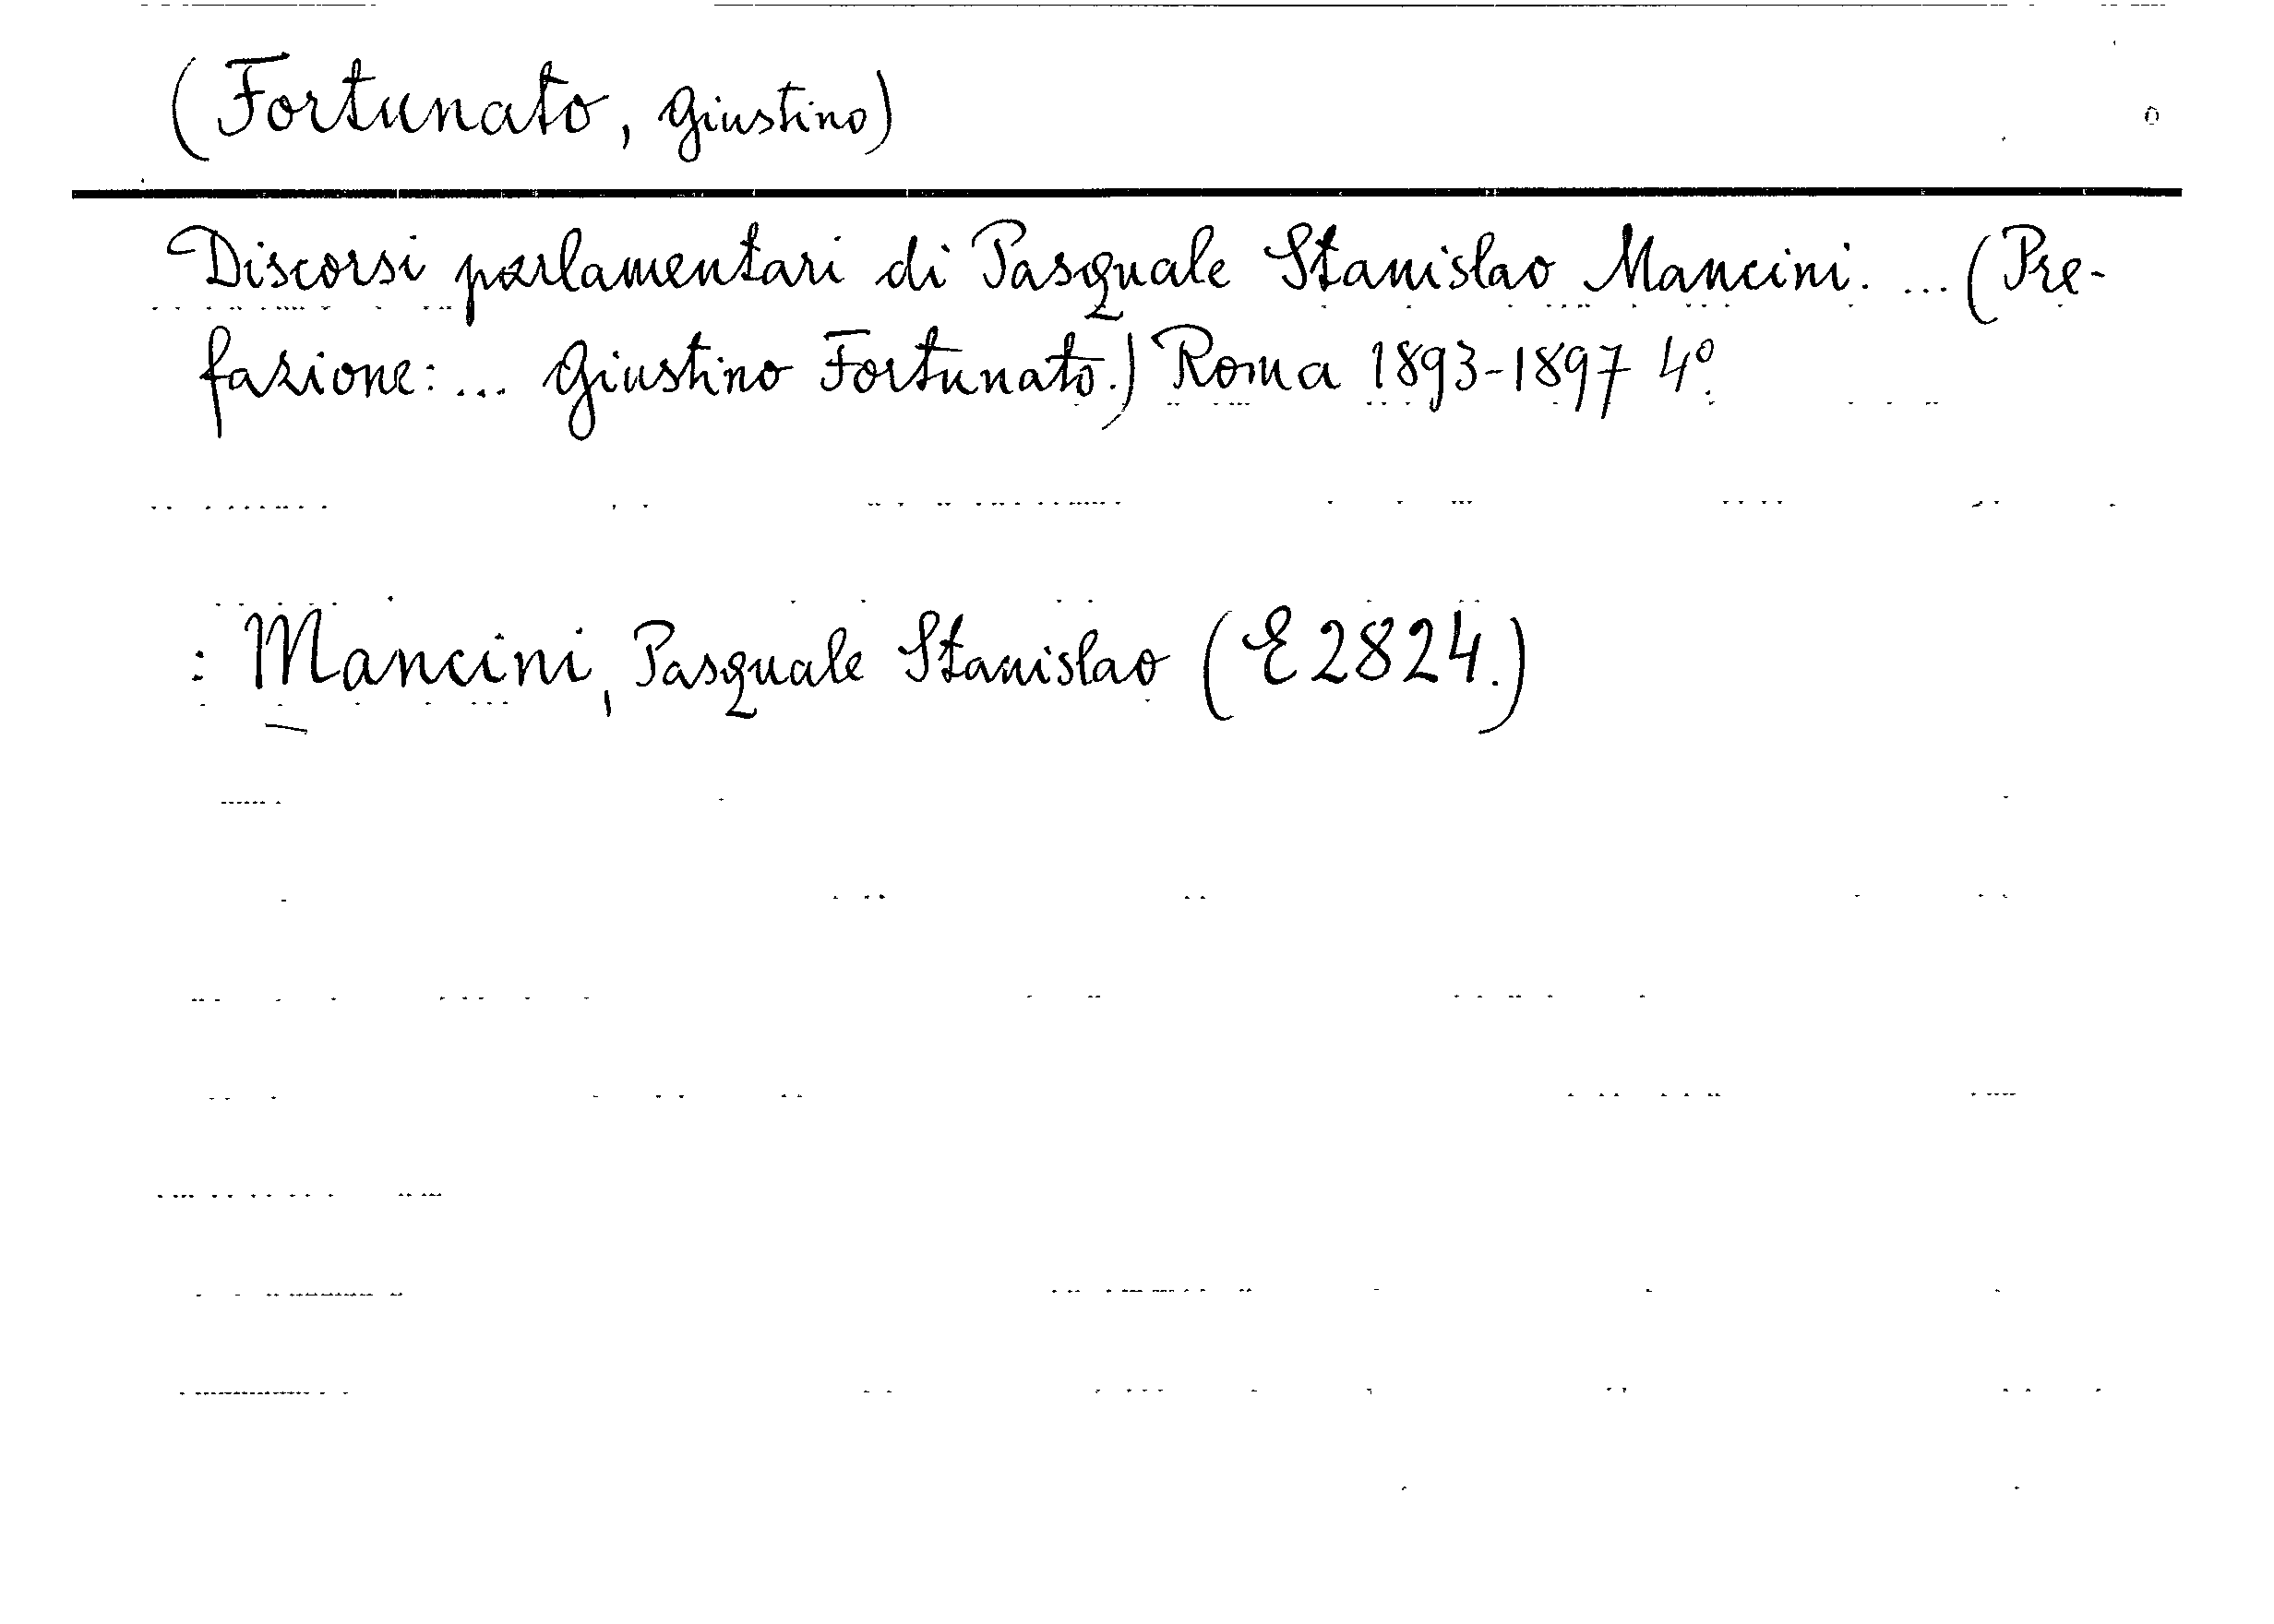 (Fortunato, Giustino)
Discorsi parlamentari di Pasquale Stanislao Mancini. ... (Pre-
fazione: ... Giustino Fortunato.) Roma 1893-1897 4º.
: Mancini, Pasquale Stanislao (E 2824.)